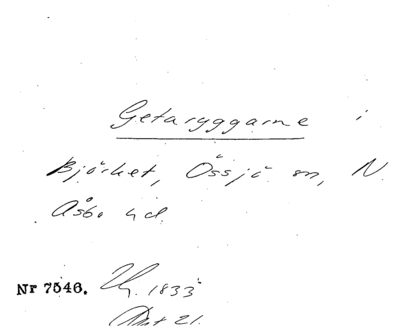 Getaryggarne i
Björket, Össjö sn, N.
Åsbo hd.
Nr 7546. 1833
21.